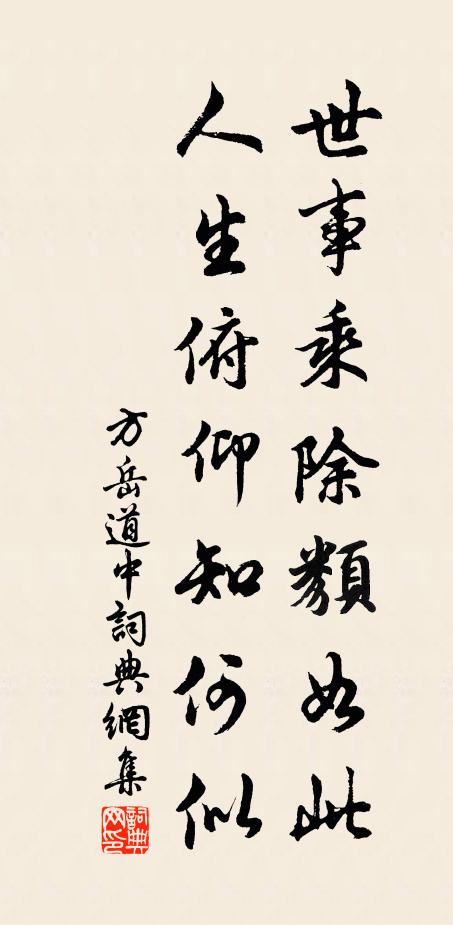 世事乘除類如此
人生俯仰知何似
方岳道中詞典網集
詞典网印